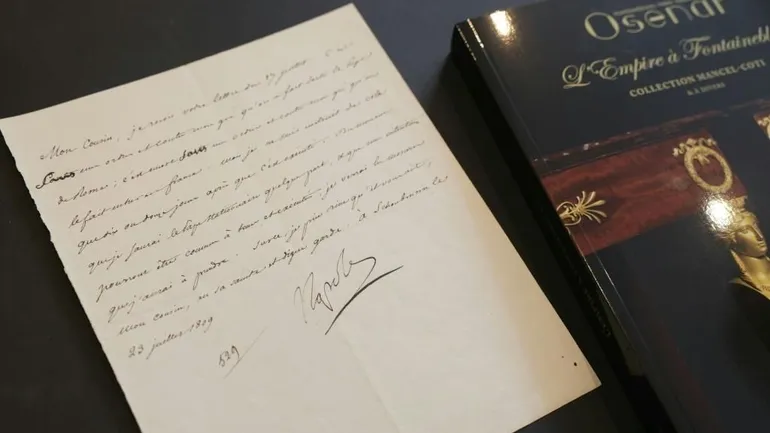 Mon Cousin, je reçois votre lettre du 17 juillet. C'est
sans mon ordre et contre mon gré qu'on a fait sortir le Pape
de Rome; c'est encore sans mon ordre et contre mon gré qu'on
le fait entrer en france. mais je ne suis instruit de cela
que dix ou douze jours après que c'est exécuté. Du moment
que je saurai le Pape stationnaire quelque part, et que mes intentions
pourront être connues à tems et exécutées, je verrai les mesures
que j'aurai à prendre. Sur ce, je prie Dieu qu'il vous ait,
Mon Cousin, en sa sainte et digne garde. à Schonbrunn le
23 juillet 1809
Napole
529
Osenat
L'Empire à Fontainebl
COLLECTION MANCEL-COTI
& À DIVERS